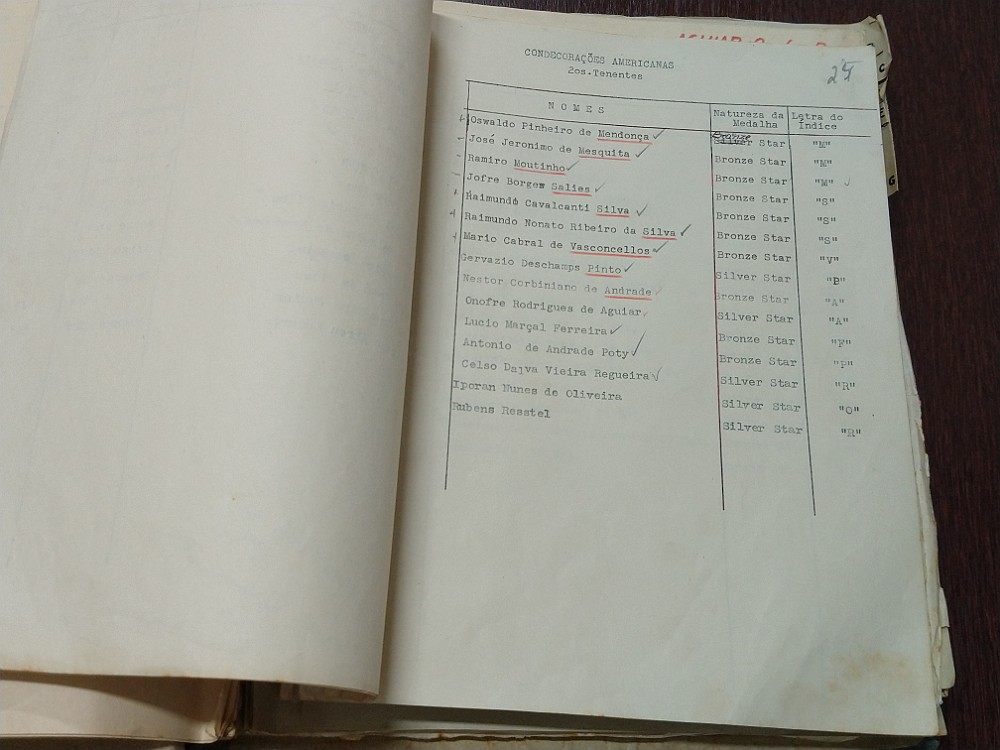 CONDECORAÇÕES AMERICANAS
2os.Tenentes
24
N O M E S Natureza da Medalha Letra do Índice
Oswaldo Pinheiro de Mendonça Bronze Silver Star "M"
José Jeronimo de Mesquita Bronze Star "M"
Ramiro Moutinho Bronze Star "M"
Jofre Borges Salies Bronze Star "S"
Raimundo Cavalcanti Silva Bronze Star "S"
Raimundo Nonato Ribeiro da Silva Bronze Star "S"
Mario Cabral de Vasconcellos Bronze Star "V"
Gervazio Deschamps Pinto Silver Star "P"
Nestor Corbiniano de Andrade Bronze Star "A"
Onofre Rodrigues de Aguiar Silver Star "A"
Lucio Marçal Ferreira Bronze Star "F"
Antonio de Andrade Poty Bronze Star "P"
Celso Dalva Vieira Regueira Silver Star "R"
Iporan Nunes de Oliveira Silver Star "O"
Rubens Resstel Silver Star "R"